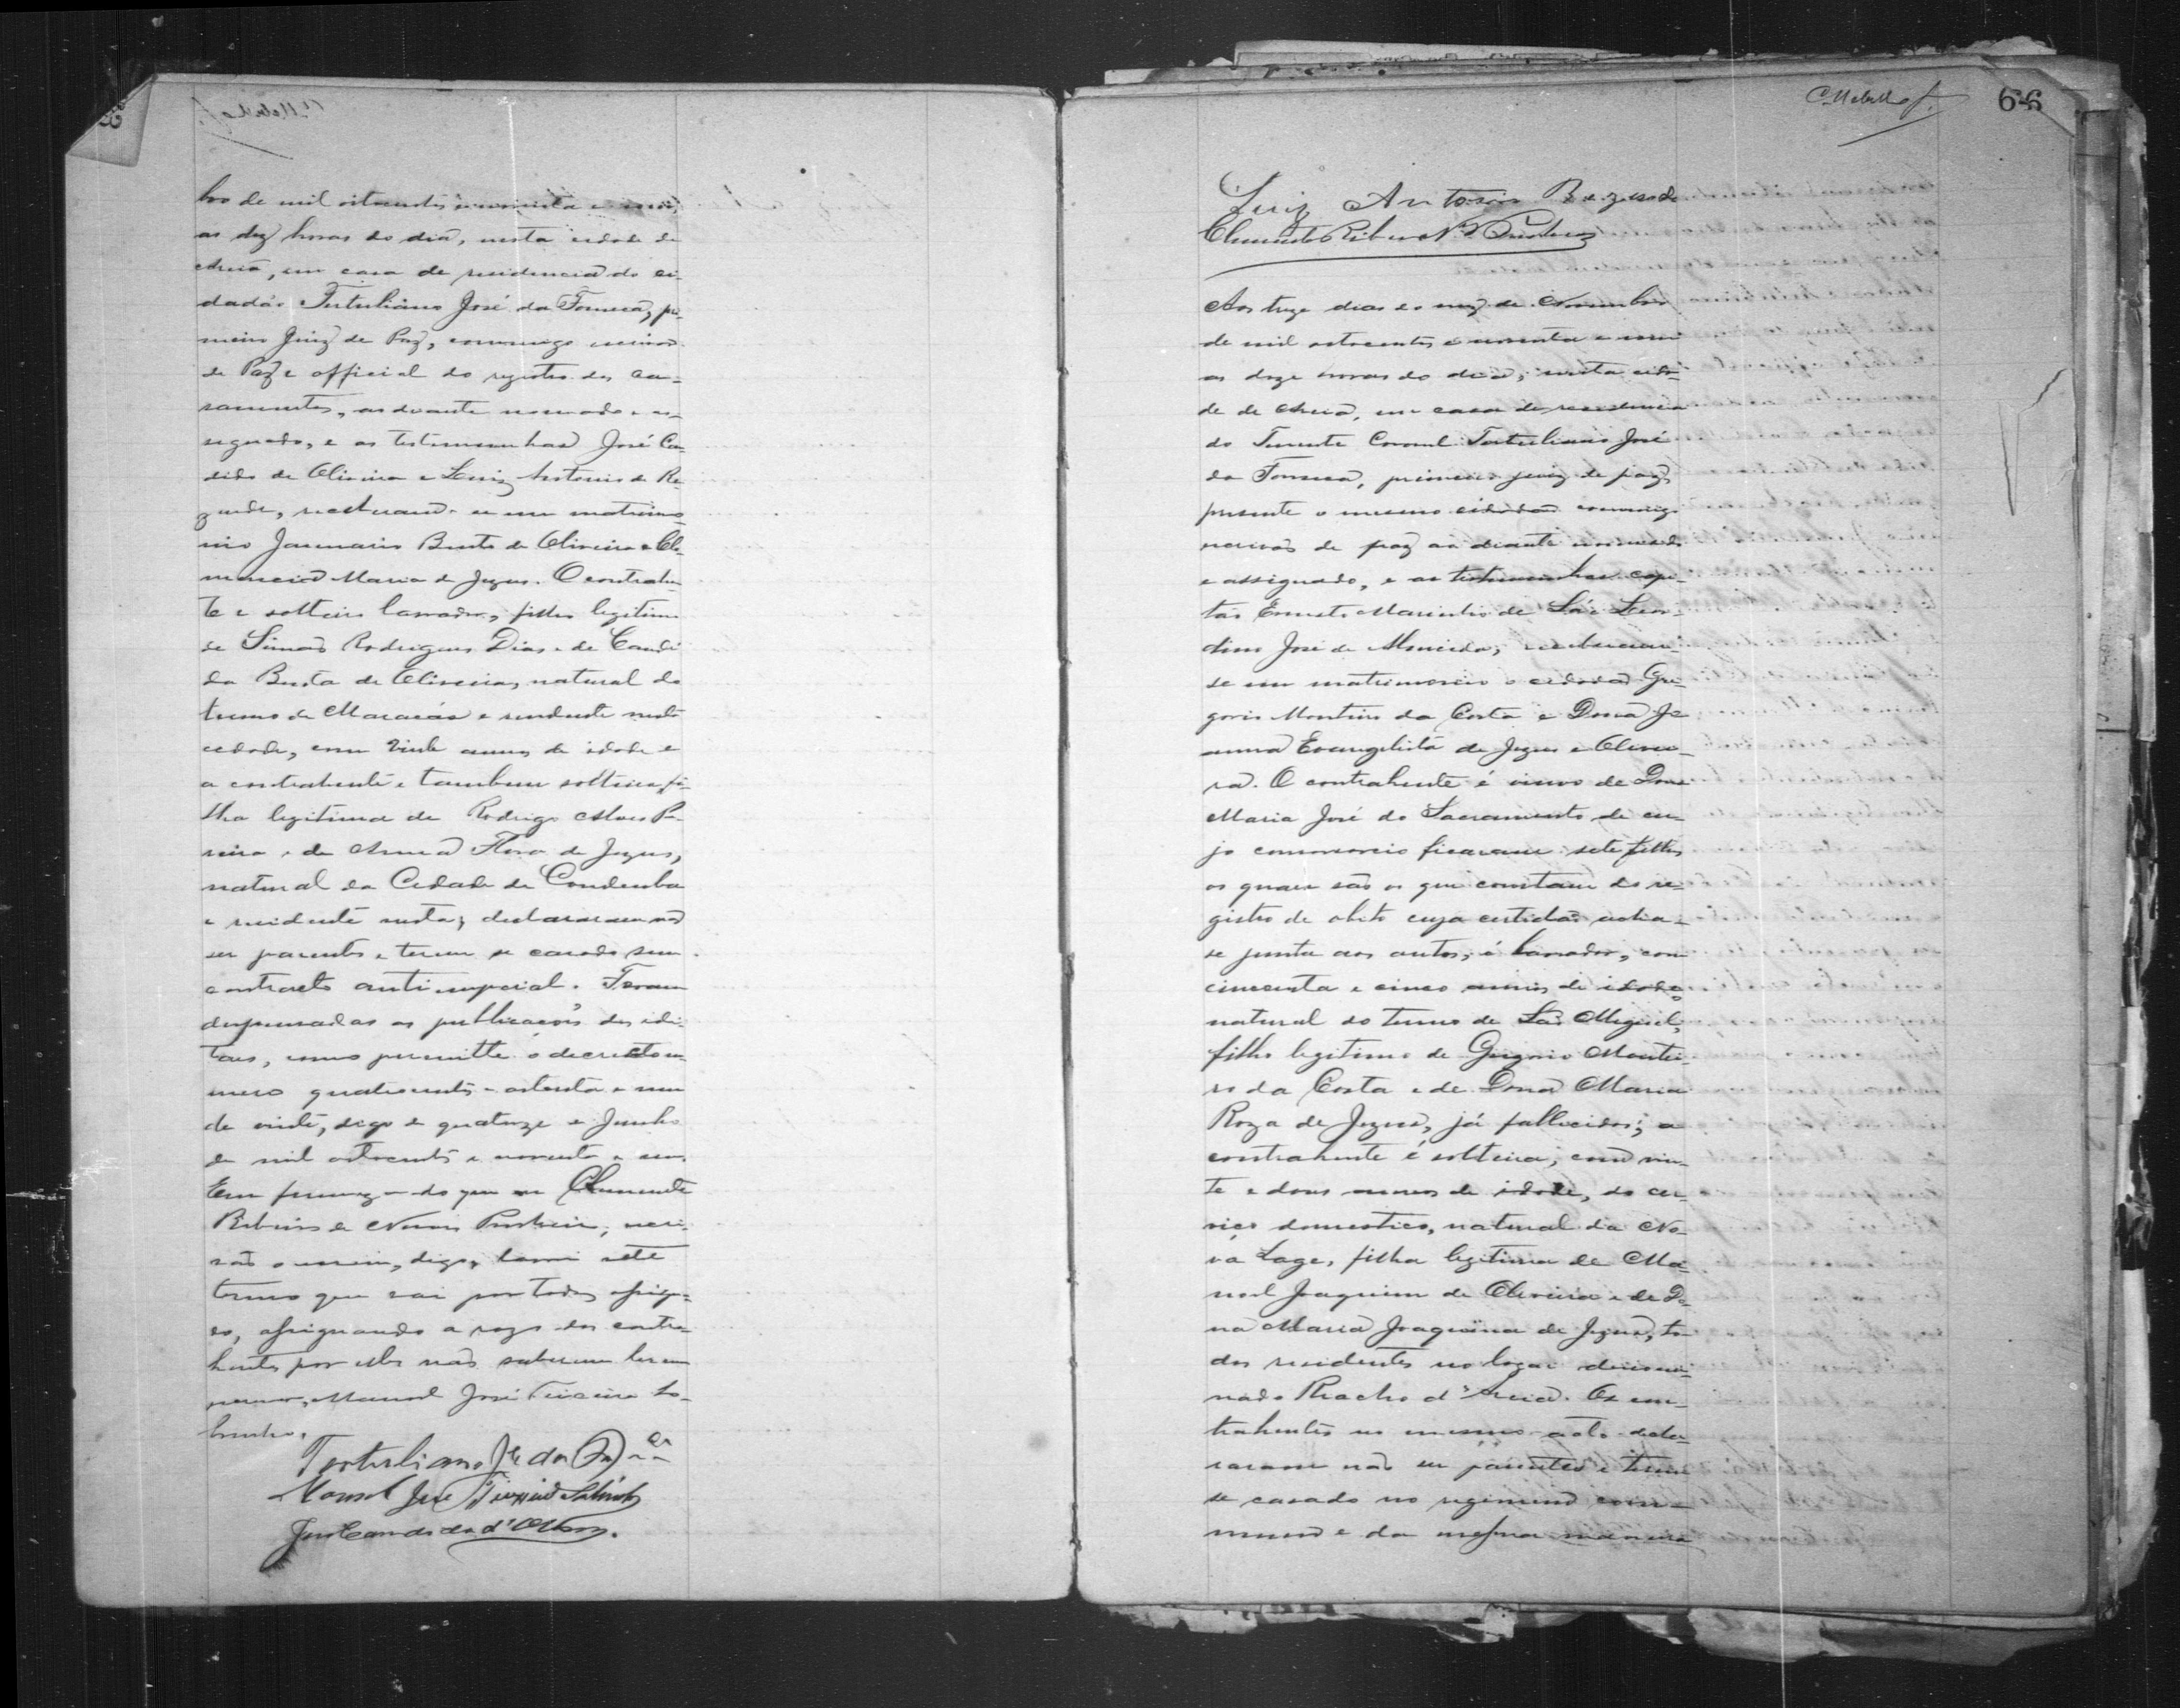 bro de mil oitocentos e noventa e seis,
as dez horas do dia, nesta cidade de
Areia, em casa de residencia do ci-
dadão Tertuliano José da Fonseca, pri-
meiro Juiz de Paz, commigo escrivão
de Paz e official do registro dos ca-
samentos, ao diante nomeado e as-
signado, e as testemunhas José Can-
dido de Oliveira e Luiz Antonio de Re-
zende, receberam-se em matrimo-
nio Januario Bento de Oliveira e Cle-
mencia Maria de Jezus. O contrahen-
te é solteiro lavrador, filho legitimo
de Simão Rodrigues Dias e de Candi-
da Benta de Oliveira, natural do
termo de Maracás e residente nesta
cidade, com vinte annos de idade e
a contrahente e tambem solteira, fi-
lha legitima de Rodrigo Alves Pe-
reira e de Anna Flora de Jezus,
natural da Cidade de Condeuba
e residente nesta; declararam não
ser parentes e terem se casado sem
contracto antinupcial. Foram
dispensadas as publicações dos edi-
taes, como permitte o decreto nu-
mero quatrocentos e oitenta e um
de vinte, digo de quatorze de Junho
de mil oitocentos e noventa e um.
Em firmeza do que eu Clemente
Ribeiro de Novaes, escri-
vão o escrevi, digo, lavrei este
termo que vai por todos assigna-
do, assignando a rogo dos contra-
hentes por elles não saberem ler nem
escrever, Manoel José Teixeira So-
brinho.
Tertuliano Je da Fonca
Manoel José Teixeira Sobrinho
José Candido d'Olivra.
66
Luiz Antonio Rezende
Clemente Ribeiro N.
Aos treze dias do mez de Novembro
de mil oitocentos e noventa e seis
as doze horas do dia, nesta cida-
de de Areia, em casa de residencia
do Tenente Coronel Tertuliano José
da Fonseca, primeiro juiz de paz,
presente o mesmo cidadão commigo
escrivão de paz ao diante nomeado
e assignado, e as testemunhas capi-
tão Ernesto Marinho de Sá e Leon-
dino José de Almeida, receberam-
se em matrimonio o cidadão Gre-
gorio Monteiro da Costa e Dona Jo-
anna Evangelista de Jezus e Olivei-
ra. O contrahente é viuvo de Dona
Maria José do Sacramento de cu-
jo consorcio ficaram sete filhos
os quaes são os que constam do re-
gistro de obito cuja certidão acha-
se junta aos autos, é lavrador, com
cincoenta e cinco annos de idade,
natural do termo de São Miguel,
filho legitimo de Gregorio Montei-
ro da Costa e de Dona Maria
Roza de Jezus, já fallecidos; a
contrahente é solteira, com vin-
te e dous annos de idade, do ser-
viço domestico, natural da No-
va Lage, filha legitima de Ma-
noel Joaquim de Oliveira e de Do-
na Maria Joaquina de Jezus, to-
dos residentes no logar denomi-
nado Riacho d'Areia. Os con-
trahentes no mesmo acto decla-
raram não ser parentes e terem
se casado no regimen com-
mum e da mesma maneira